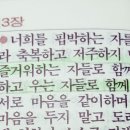 3장
너희를 핍박하는 자들
과 축복하고 저주하지
즐거워하는 자들로 함께
하고 우는 자들로 함께
서로 마음을 같이하며
마음을 두지 말고 도